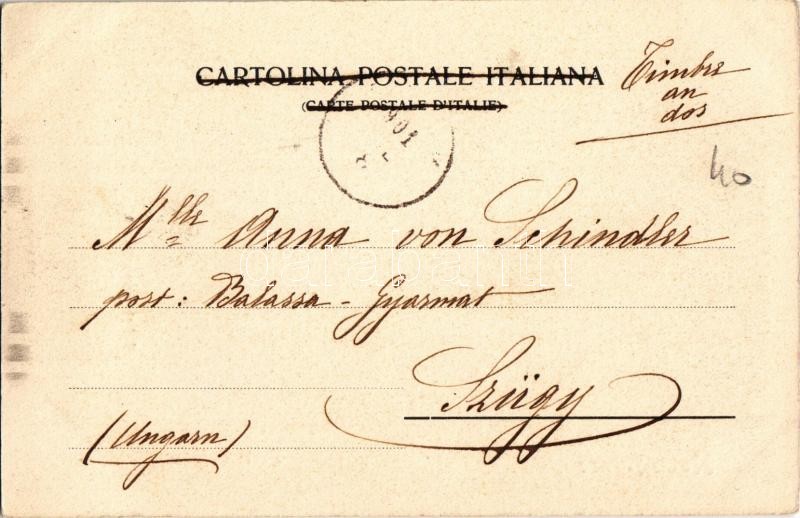 CARTOLINA POSTALE ITALIANA
(CARTE POSTALE D'ITALIE)
Timbre
an
dos
901
40
Mlle Anna von Schindler
post: Balassa-Gyarmat
Szügy
(Ungarn)